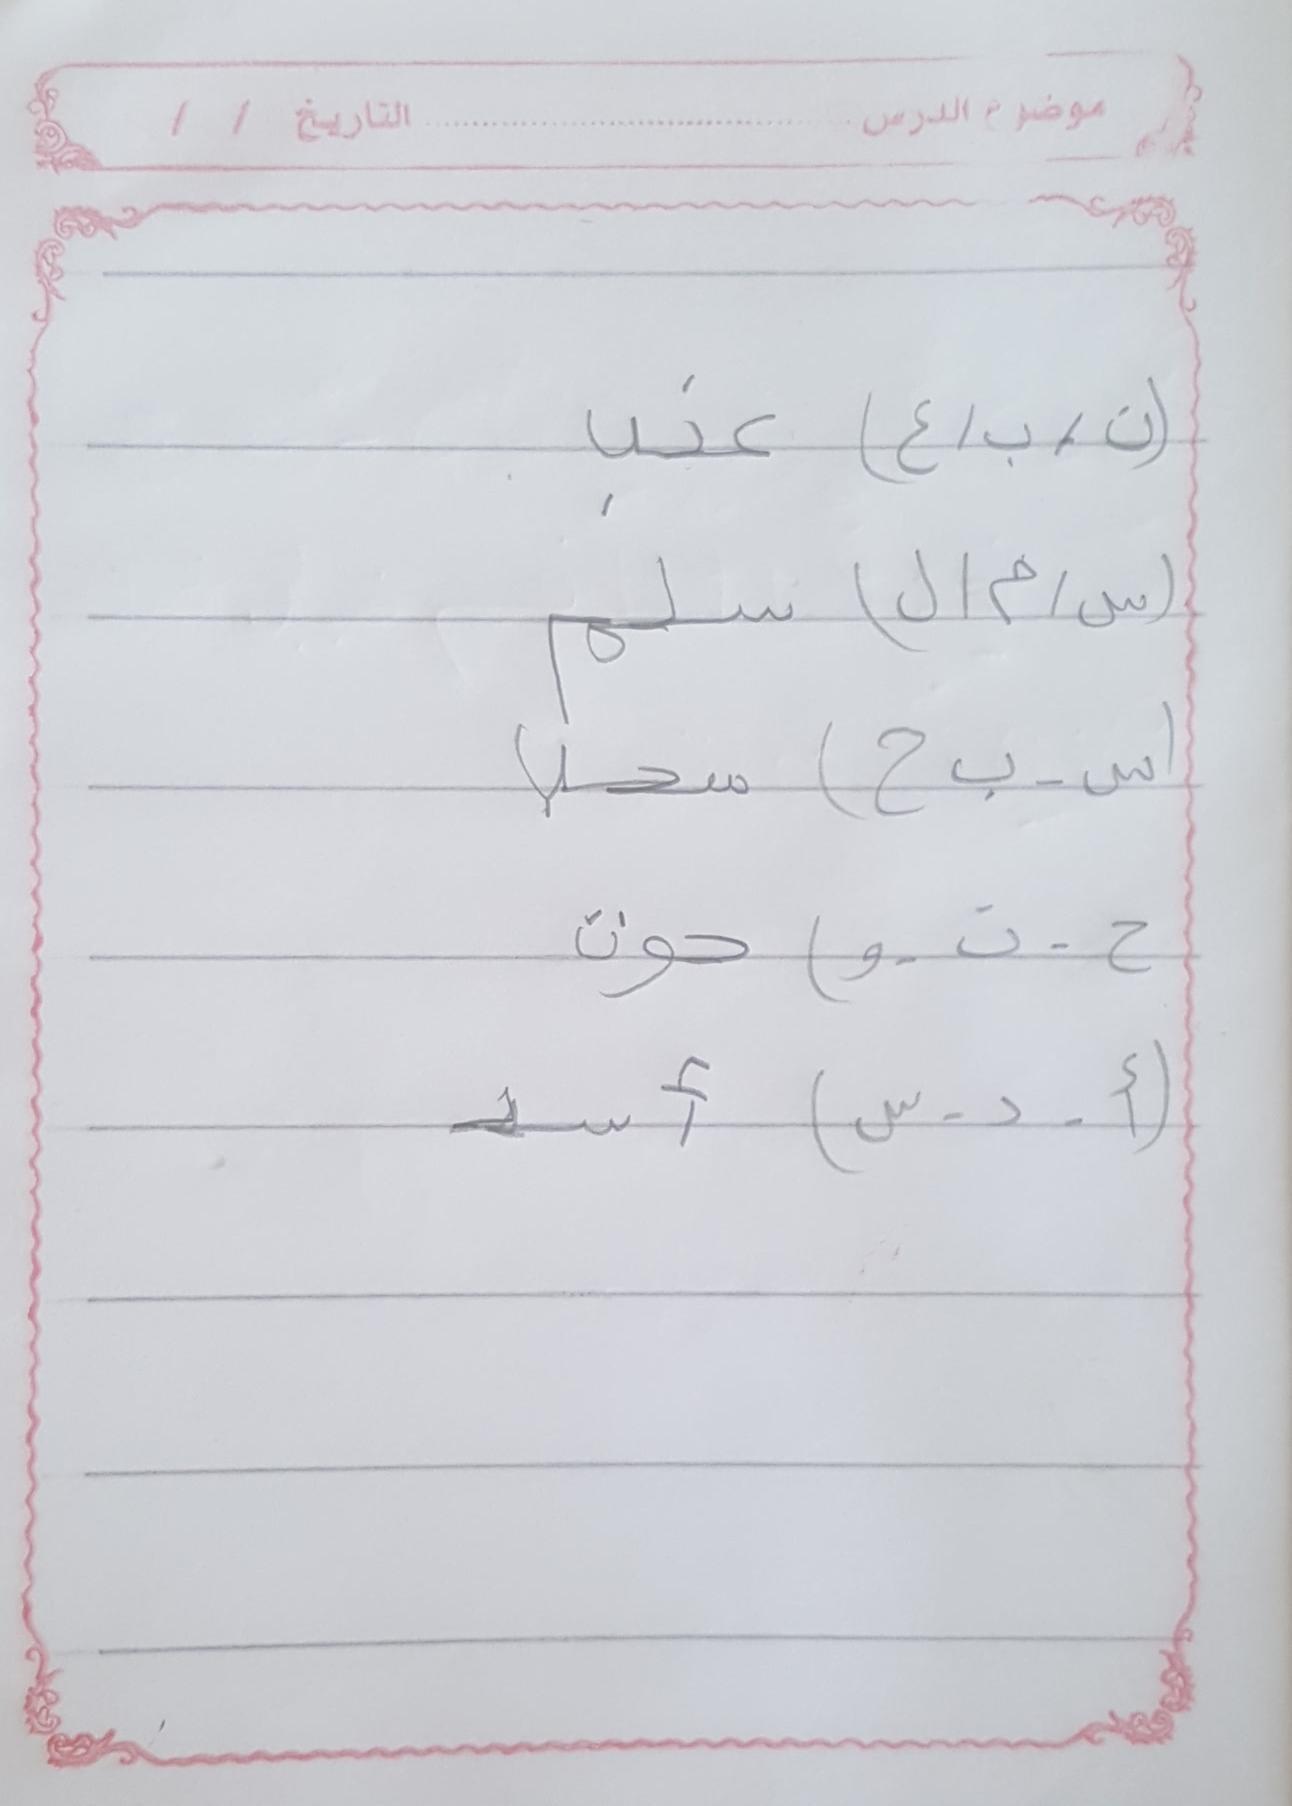 موضوع الدرس ........................ التاريخ / /
(ن / ب / ع) عنب
(س / م / ل) سلم
(س - ب ح)
ح - ت - و) حوت
(أ - د - س) أسد